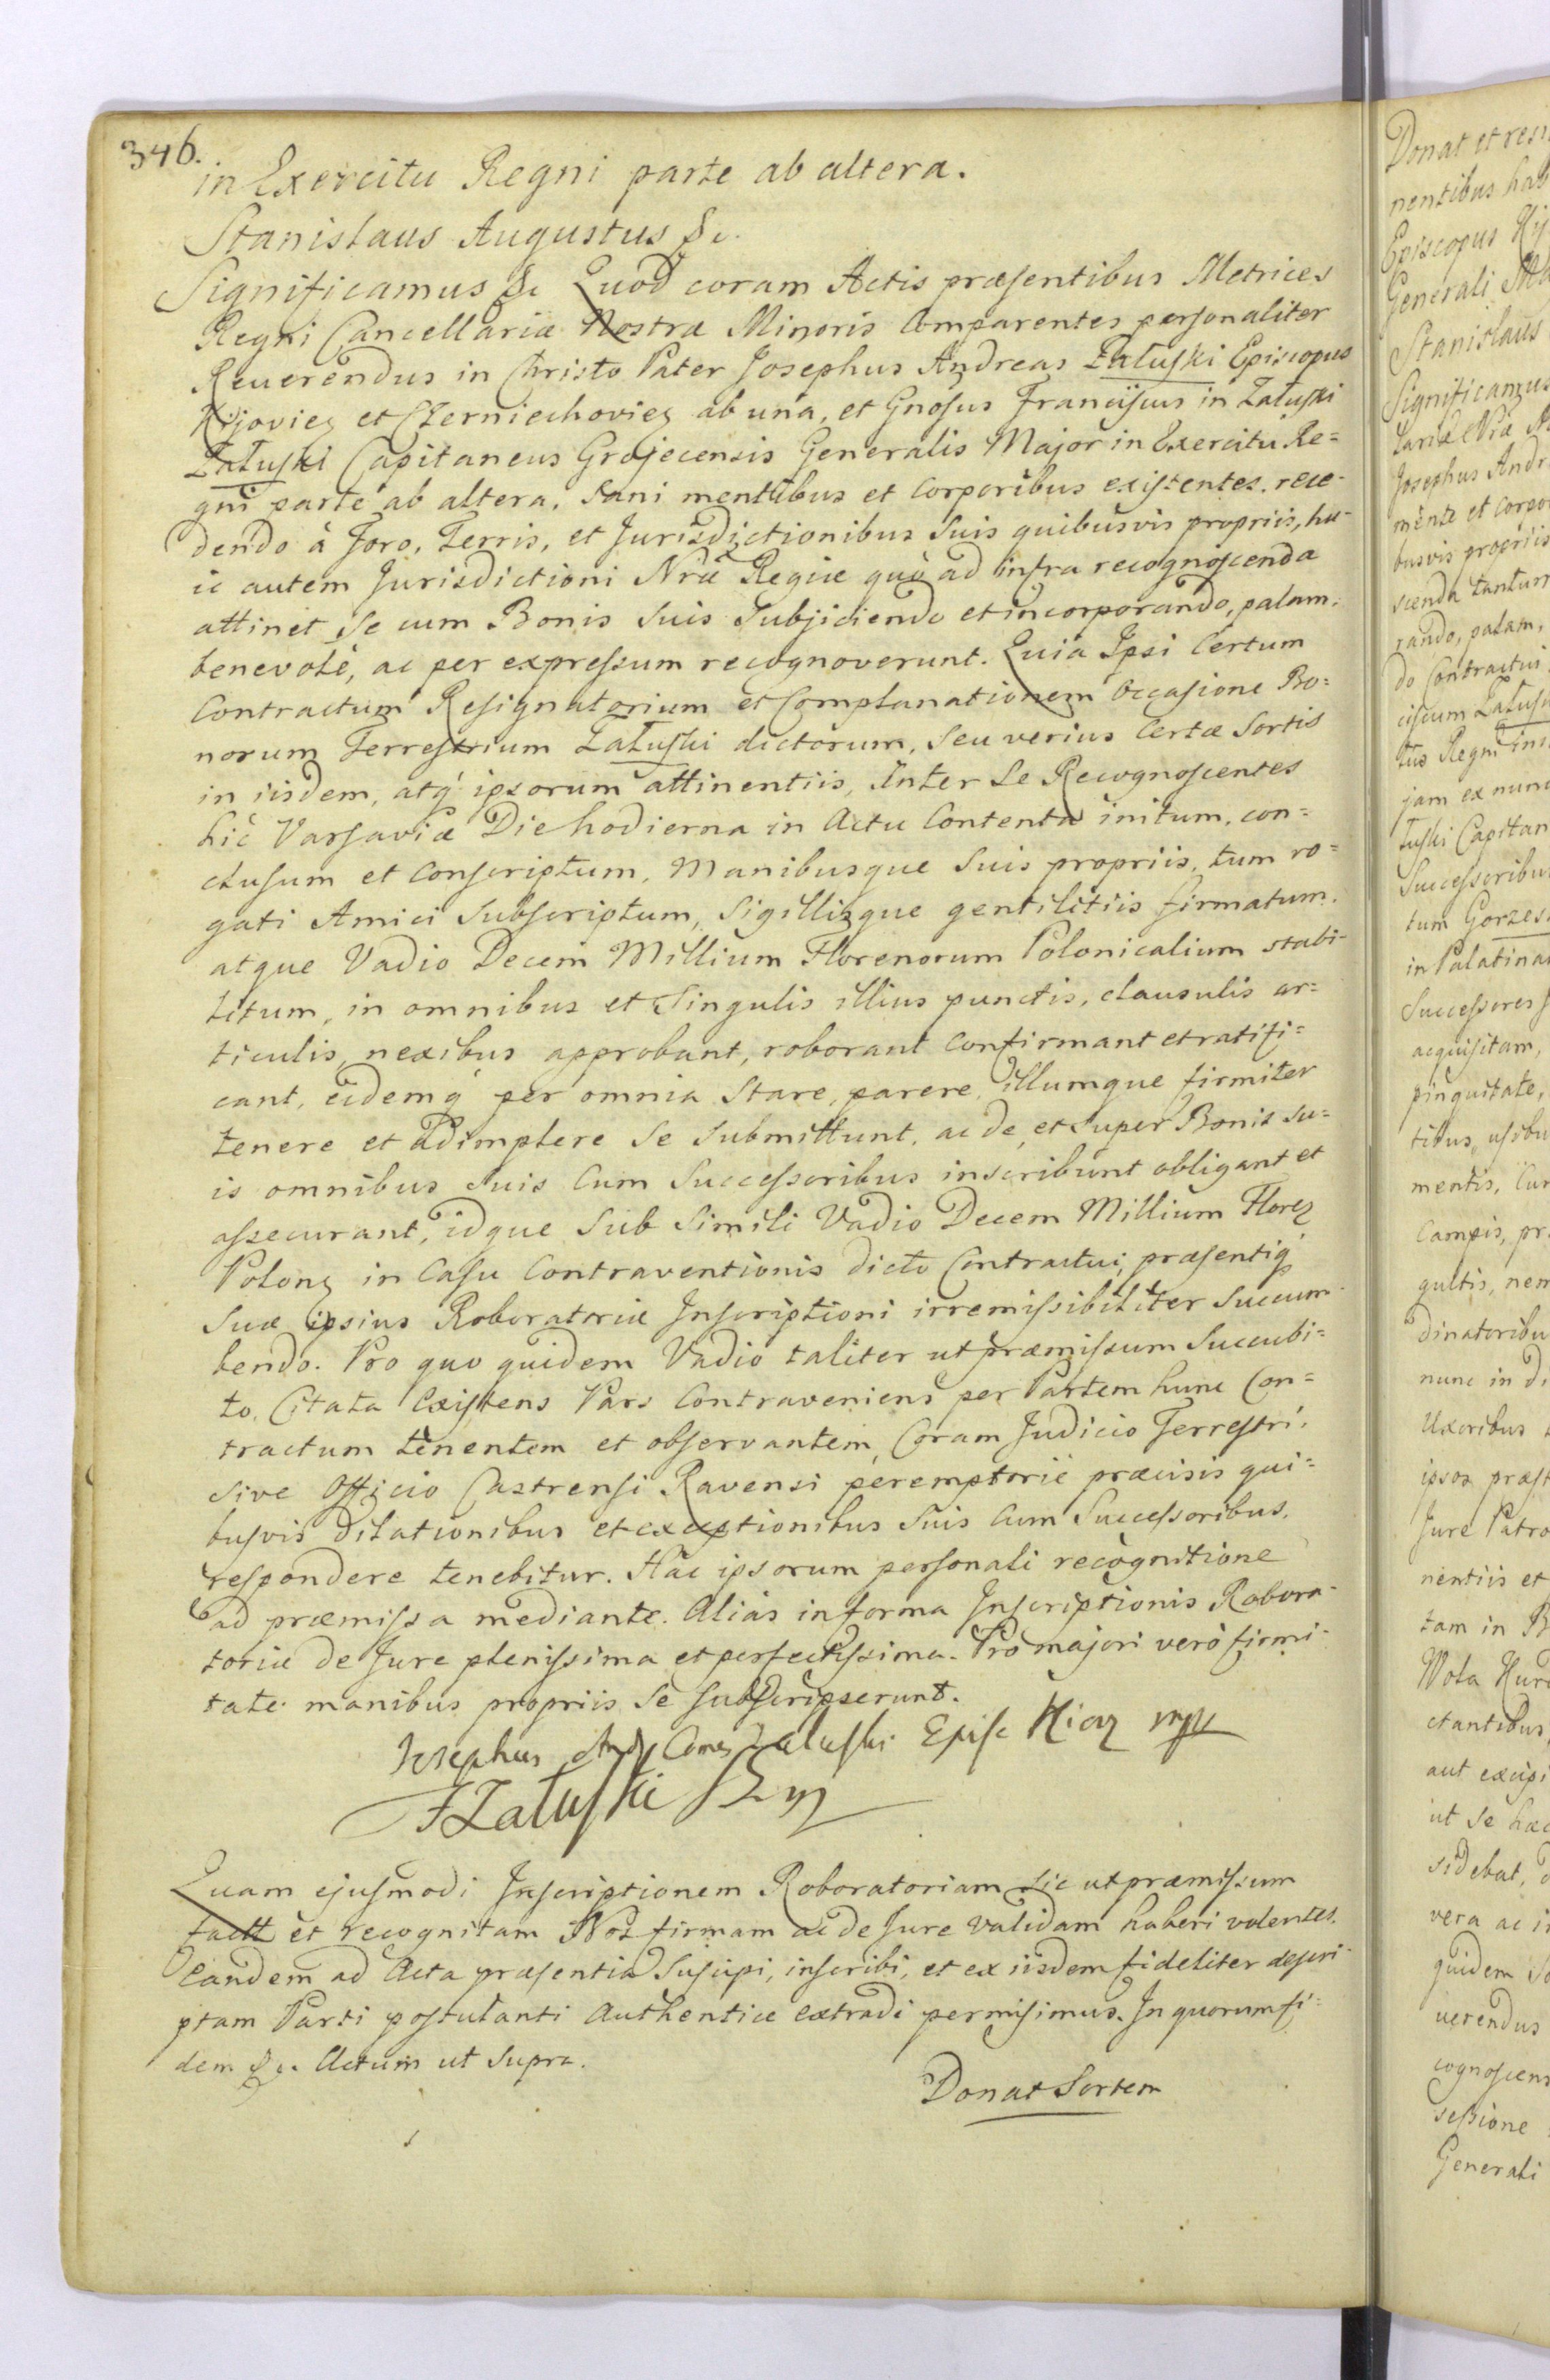 346.
in Exercitu Regni parte ab altera.
Stanislaus Augustus &c.
Significamus &c Quod coram Actis præsentibus Metrices
Regni Cancellariæ Nostræ Minoris Comparentes personaliter
Reverendus in Christo Pater Josephus Andreas Załuski Episcopus
Kijoviez et Czerniechoviez ab una, et Gnosus Franciscus in Załuski
Załuski Capitaneus Grojecensis Generalis Major in Exercitu Re=
gni parte ab altera, Sani mentibus et Corporibus existentes, rece-
dendo à Foro, Terris, et Jurisdictionibus Suis quibusvis propriis, hu-
ic autem Jurisdictioni Nræ Regiæ quò ad infra recognoscenda
attinet Se cum Bonis Suis Subjiciendo et incorporando, palam,
benevolè, ac per expressum recognoverunt. Quia Ipsi Certum
Contractum Resignatorium et Complanationem Occasione Bo=
norum Terrestrium Załuski dictorum, Seu verius Certæ Sortis
in iisdem, atq́ ipsorum attinentiis, Inter Se Recognoscentes
hic Varsaviæ Die hodierna in Actu Contenta initum, con=
clusum et Conscriptum, Manibusque Suis propriis, tum ro=
gati Amici Subscriptum, Sigillisque gentilitiis firmatum,
atque Vadio Decem Millium Florenorum Polonicalium stabi-
litum, in omnibus et Singulis illius punctis, clausulis ar=
ticulis, nexibus approbant, roborant Confirmant et ratifi=
cant, eidemq́ per omnia Stare, parere, illumque firmiter
tenere et adimplere Se Submittunt, ac de, et Super Bonis Su=
is omnibus Suis Cum Successoribus inscribunt obligant et
assecurant, idque Sub Simili Vadio Decem Millium Florez
Polonz in Casu Contraventionis dicto Contractui, præsentiq́
Suæ ipsius Roboratoriæ Inscriptioni irremissibiliter Succum-
bendo. Pro quo quidem Vadio taliter ut præmissum Succubi=
to, Citata Existens Pars Contraveniens per Partem hunc Con=
tractum tenentem et observantem, Coram Judicio Terrestri,
sive Officio Castrensi Ravensi peremptoriè præcisis qui=
busvis Dilationibus et exceptionibus Suis Cum Successoribus,
respondere tenebitur. Hac ipsorum personali recognitione
ad præmissa mediante. Aliàs in forma Inscriptionis Robora-
toriæ de Jure plenissima et perfectissima. Pro majori verò firmi-
tate manibus propriis Se Subscripserunt.
Josephus And Comes Zaluski Episc Kiov mpp
FZałuski SG mp
Quam ejusmodi Inscriptionem Roboratoriam sic ut præmissum
factt et recognitam Nos firmam ac de Jure validam haberi volentes,
Eandem ad Acta præsentia Suscipi, inscribi, et ex iisdem fideliter descri-
ptam Parti postulanti Authenticè extradi permisimus. In quorum fi=
dem &c. Actum ut Supra.
Donat Sortem
Donat et resi
nentibus hab
Episcopus Kij
Generali Ma
Stanislaus
Significamus
lariæ Nræ M
Josephus Andr
mente et Corpor
busvis propriis
scenda tantum
rando, palam,
do Contractui
ciscum Załuski
tus Regni
jam ex nunc
łuski Capitan
Successoribu
tum Gorzes
in Palatina
Successores
acquisitam,
pinguitate,
tibus, usibu
mentis, Cur
Campis, pr
gultis, nem
dinatoribu
nunc in d
Uxoribus
ipsos præst
Jure Patro
nentiis et
tam in B
Wola Kurd
ctantibus,
aut excipi
ut Se hæc
sidebat,
vera ac i
quidem So
verendus
cognoscens
sessione
Generali